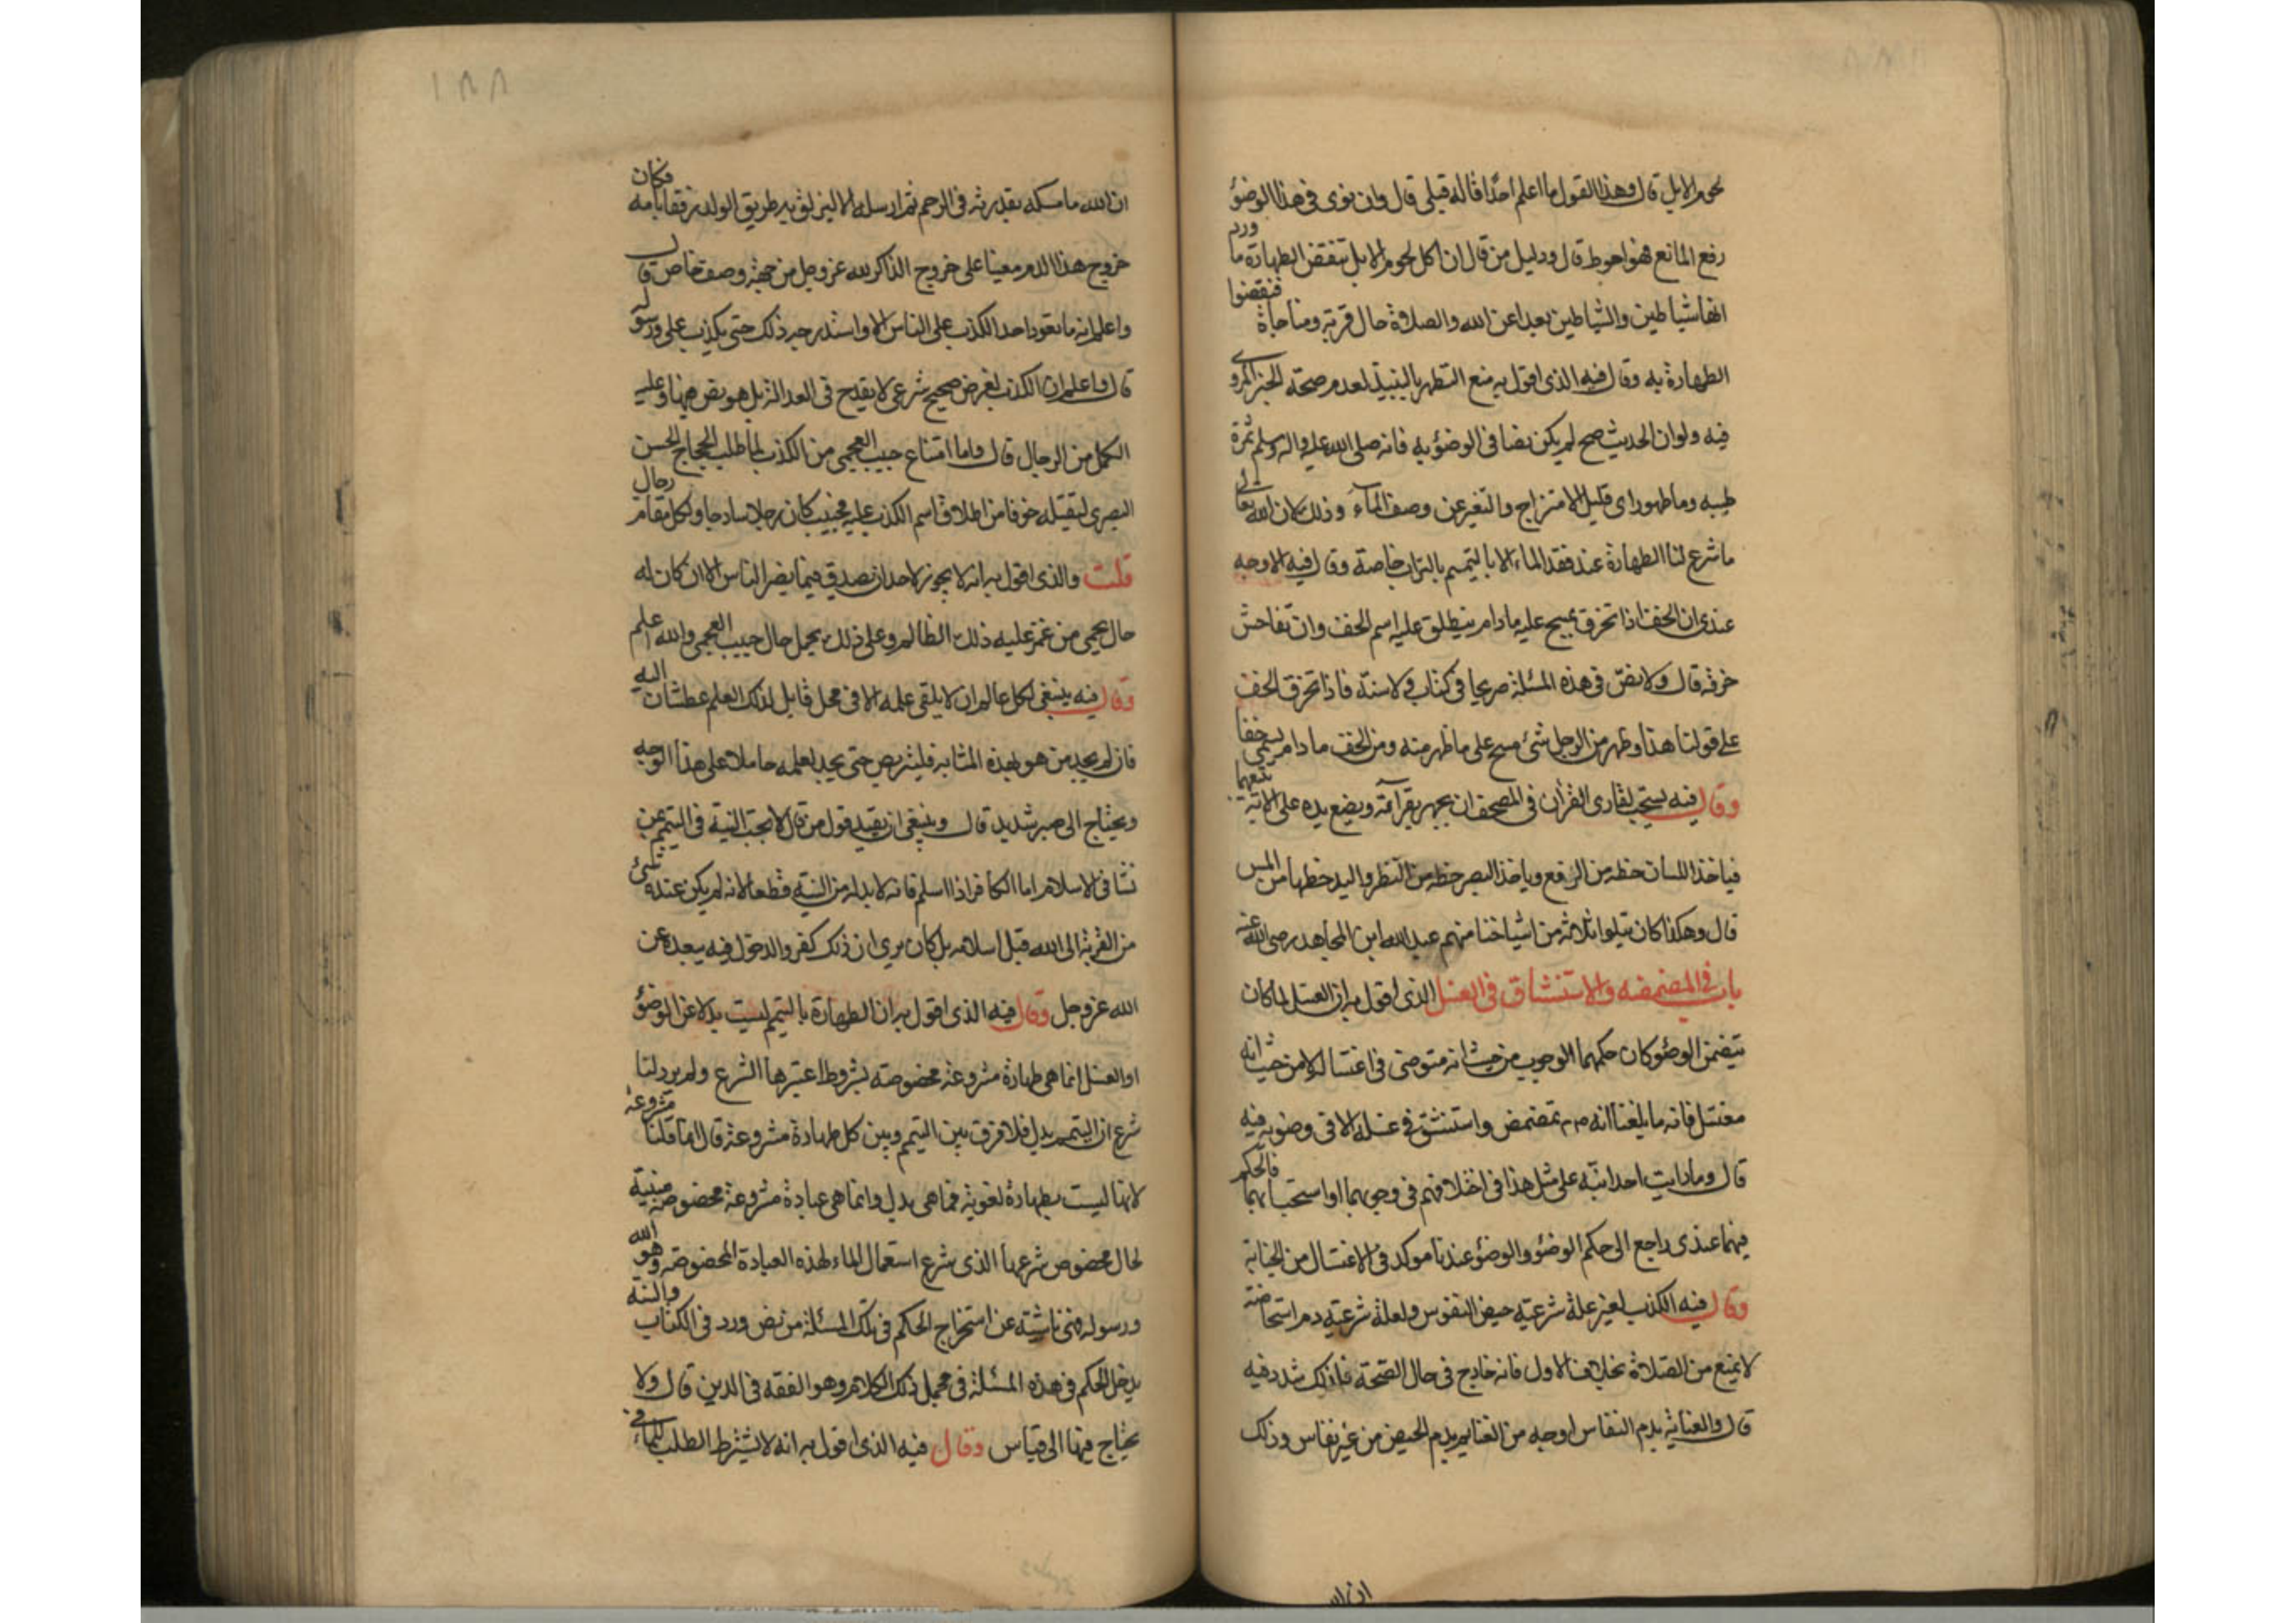 لحوم الابل قال وهذا القول ما اعلم احدًا قاله قبلي قال وان نوى في هذا الوضؤ
رفع المانع فهو احوط قال ودليل من قال ان اكل لحوم الابل تنقض الطهارة ما ورد
انها شياطين والشياطين بعداعن الله والصلاة حال قربة ومناجاة فنقضوا
الطهارة به وقال فيه الذي اقول به منع التطهر بالنبيذ لعدم صحة الخبز المروي
فيه ولوان الحديث صح لم يكن نصا في الوضؤ به فانه صلى الله عليه واله وسلم ثمرة
طيبه وماطهور اي قليل الامتزاج والتغير عن وصف المآء وذلك لان الله تعالى
ماشرع لنا الطهارة عند فقد الماء الا بالتيمم بالتراب خاصة وقال فيه الاوجه
عندي ان الخف اذا تخرق يمسح عليه مادام ينطلق عليه اسم الخف وان تفاحش
خرقه قال ولا نصّ في هذه المسئلة صريحا في كتاب ولا سنة فاذا تخرق الخف
على قولنا هذا وظهر من الرجل شئ مسح على ماظهر منه ومن الخف مادام يسمى خفا
وقال فيه يستحب لقارى القرأن في المصحف ان يجهر بقرآءته ويضع يده على الاية يتبعها
فياخذ اللسان حظه من الرفع وياخذ البصر حظه من النظر واليد حظها من المس
قال وهكذا كان يتلوا ثلاثه من اشياخنا منهم عبد الله ابن المجاهد رضى الله عنه
باب في المضمضه والاستنشاق في الغسل الذي اقول به ان الغسل لما كان
يتضمن الوضؤ كان حكمهما الوجوب من حيث انه متوضئ في اغتساله لا من حيث انه
مغتسل فانه ما بلغنا انه صم تمضمض واستنشق في غسله الا في وضوءه فيه
قال وما رايت احدا نبّه على مثل هذا في اختلافهم في وجوبهما او استحبابهما فالحكم
فيهما عندي راجع الى حكم الوضؤ والوضؤ عندنا موكد في الاغتسال من الجنابة
وقال فيه الكذب لغير علة شرعيه حيض النفوس ولعلة شرعيه دم استحاضة
لا يمنع من الصلاة بخلاف الاول فانه خارج في حال الصحة فلذلك شدد فيه
قال والعناية بدم النفاس اوجه من العناية بدم الحيض من غير نفاس وذلك
ان الله
١٨٨
ان الله ما مسكه بقدرته في الرحم ثم ارسله الا ليزلق به طريق الولد رفقا بامه فكان
خروج هذا الدم معينا على خروج الذاكر لله عز وجل من جهة وصف خاص قال
واعلم انه ما تعود احد الكذب على الناس الا واستدرجه ذلك حتى يكذب على ورسوله
قال واعلم ان الكذب لغرض صحيح شرعى لا يقدح في العدالة بل هو نص فيها وعليه
الكمل من الرجال قال واما امتناع حبيب العجمى من الكذب لما طلب الحجاج الحسن
البصرى ليقتله خوفا من اطلاق اسم الكذب عليه فحبيب كان رجلا سادجا ولكل مقام رجال
قلت والذي اقول به انه لا يجوز لاحد ان يصدق فيما يضر الناس الا ان كان له
حال يحمى من غمز عليه ذلك الظالم وعلى ذلك يحمل حال حبيب العجمى والله اعلم
وقال فيه ينبغى لكل عالم ان لا يلقى علمه الا في محل قابل لذلك العلم عطشان اليه
فان لم يجد من هو بهذه المثابه فليتربص حتى يجد لعلمه حاملا على هذا الوجه
ويحتاج الى صبر شديد قال وينبغى ان يقيد قول من قال لا تجب النية في التيمم بمن
نشا في الاسلام اما الكافر اذا اسلم فانه لا بد له من النية قطعا لانه لم يكن عنده شئ
من القربة الى الله قبل اسلامه بل كان يرى ان ذلك كفر والدخول فيه يبعد عن
الله عز وجل وقال فيه الذي اقول به ان الطهارة بالتيمم ليست بدلا عن الوضؤ
او الغسل انما هي طهارة مشروعة مخصوصة بشروط اعتبرها الشرع ولم يرد لنا
شرع ان التيمم بدل فلا فرق بين التيمم وبين كل طهارة مشروعة قال انما قلنا مشروعة
لانها ليست بطهارة لغوية فما هى بدل وانما هى عبادة مشروعة مخصوصة مبنية
لحال مخصوص شرعها الذي شرع استعمال الماء لهذه العبادة المخصوصة وهو الله
ورسوله فهى ناشئة عن استخراج الحكم في تلك المسئلة من نص ورد في الكتاب والسنة
يدخل الحكم في هذه المسئلة في مجمل ذلك الكلام وهو الفقه في الدين قال ولا
يحتاج فيها الى قياس وقال فيه الذي اقول به انه لا يشترط الطلب للماء في